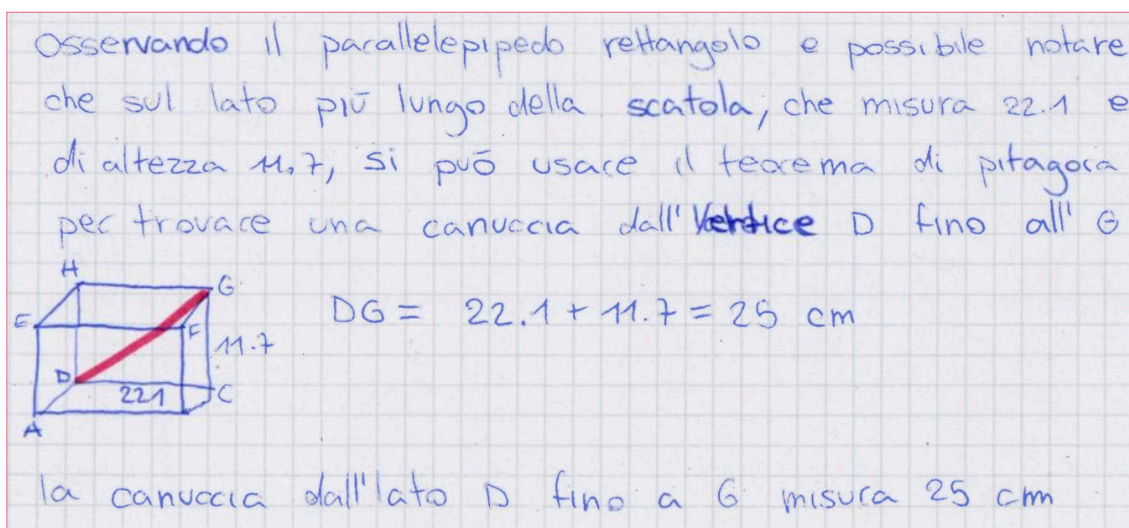 Osservando il parallelepipedo rettangolo e possibile notare
che sul lato più lungo della scatola, che misura 22.1 e
di altezza 11.7, si può usare il teorema di pitagora
per trovare una canuccia dall'Vertice D fino all' G
H
G
E
F
DG = 22.1 + 11.7 = 25 cm
11.7
D
221
C
A
la canuccia dall'lato D fino a G misura 25 cm